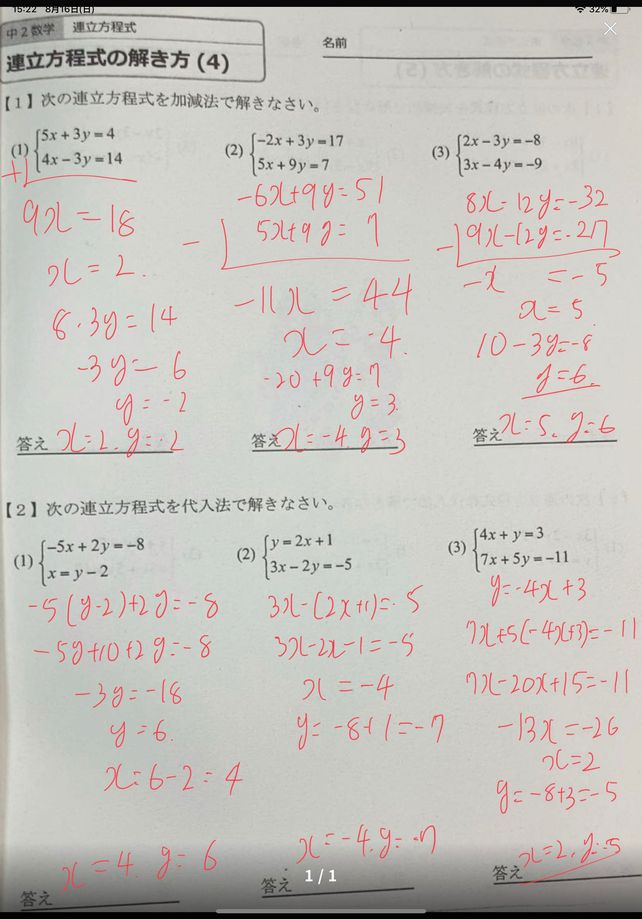 15:22 8月16日(日) 32%
中2数学 連立方程式
連立方程式の解き方 (4)
名前
【1】次の連立方程式を加減法で解きなさい。
(1) {5x + 3y = 4
4x − 3y = 14
+
9x = 18
x = 2.
8 - 3y = 14
-3y = 6
y = -2
答え x=2, y=-2
(2) {−2x + 3y = 17
5x + 9y = 7
-6x+9y=51
- 5x+9y= 7
-11x = 44
x = -4.
-20+9y=7
y=3.
答え x=-4, y=3
(3) {2x − 3y = −8
3x − 4y = −9
8x-12y=-32
- 9x-12y=-27
-x = -5
x=5.
10-3y=-8
y=6.
答え x=5, y=6
【2】次の連立方程式を代入法で解きなさい。
(1) {−5x + 2y = −8
x = y − 2
-5(y-2)+2y=-8
-5y+10+2y=-8
-3y=-18
y=6.
x=6-2=4
x=4. y=6
答え
(2) {y = 2x + 1
3x − 2y = −5
3x-(2x+1)=-5
3x-2x-1=-5
x=-4
y=-8+1=-7
x=-4, y=-7
答え
(3) {4x + y = 3
7x + 5y = −11
y=-4x+3
7x+5(-4x+3)=-11
7x-20x+15=-11
-13x=-26
x=2
y=-8+3=-5
x=2, y=-5
答え
1 / 1